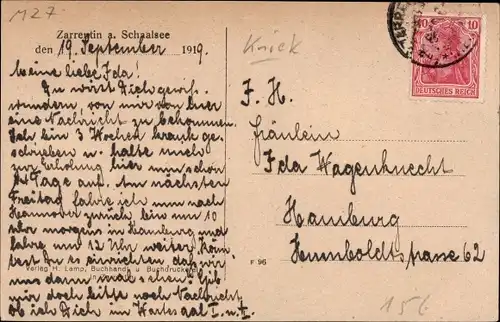 M27
Zarrentin a. Schaalsee
den 19. September 1919.
Meine liebe Ida!
Du wirst Dich gewiß
wundern, von mir von hier
eine Nachricht zu bekommen.
Ich bin 3 Wochen krank ge-
schrieben u. halte mich
zur Erholung hier nun schon
14 Tage auf. Am nächsten
Freitag fahre ich nun nach
Hannover zurück, bin um 10
Uhr morgens in Hamburg und
fahre um 12 Uhr weiter. Kön-
test Du es einrichten daß wir
Verlag H. Lamp, Buchhandl. u. Buchdruckerei
uns dann mal sehen? Gib
mir doch bitte noch Nachricht
ob ich Dich im Wartesaal I. u. II.
Knick
10 10
DEUTSCHES REICH
F. H.
Fräulein
Ida Wagenknecht
Hamburg
Humboldtstrasse 62
F 96
156